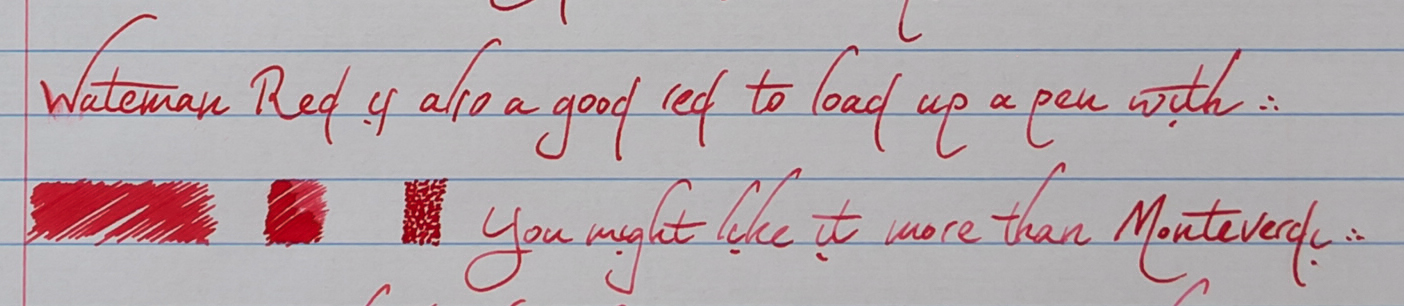 Wateman Red is also a good red to load up a pen with ∴
You might like it more than Monteverde ∴